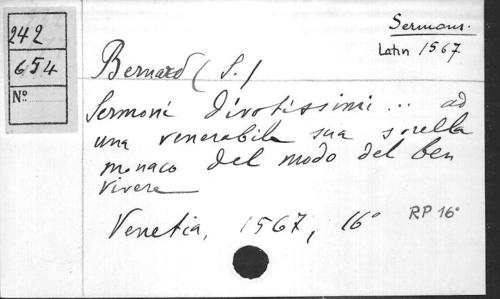 242
654
Nº
Sermons.
Latin 1567
Bernard (S.)
Sermoni divotissimi ... ad
una venerabile sua sorella
monaco del modo del ben
vivere
Venetia, 1567, 16º
RP 16º